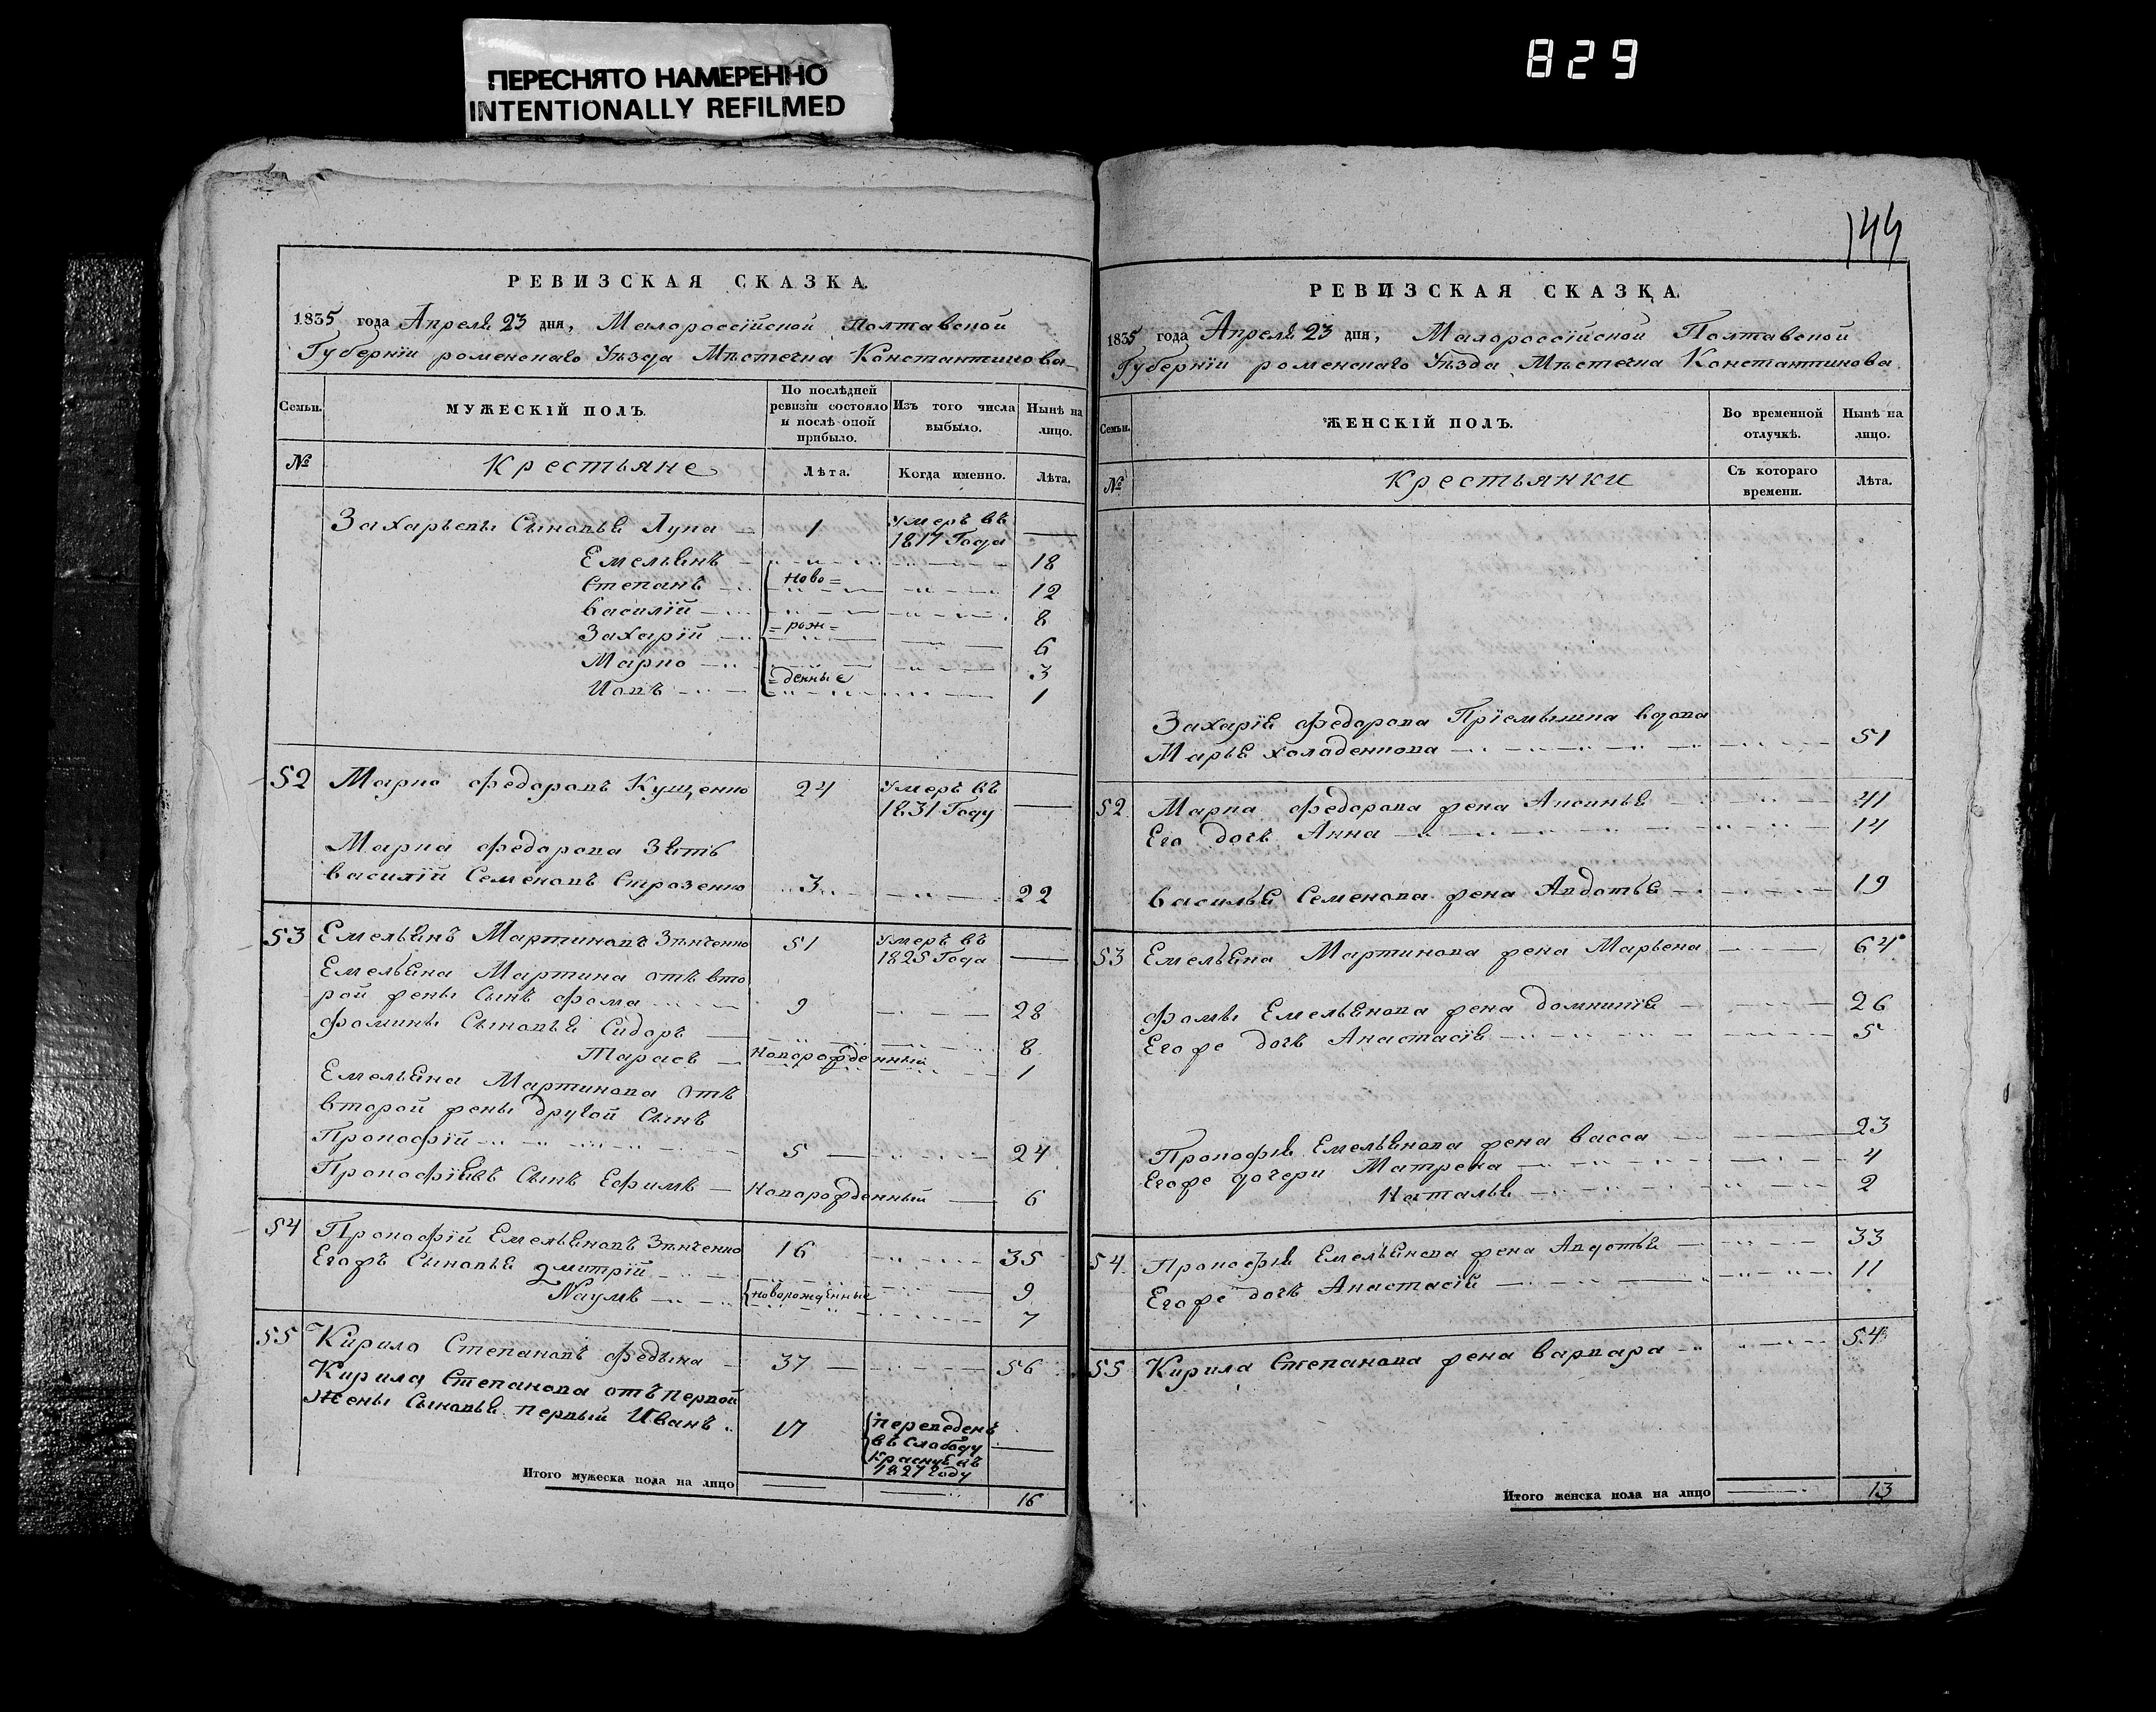 ПЕРЕСНЯТО НАМЕРЕННО
INTENTIONALLY REFILMED
829
144
РЕВИЗСКАЯ СКАЗКА.
1835 года Апреля 23 дня, Малороссійской Полтавской
Губерніи роменскаго Уѣзда Мѣстечка Константинова
Семьи.
МУЖЕСКІЙ ПОЛЪ.
По послѣдней ревизіи состояло и послѣ оной прибыло.
Изъ того числа выбыло.
Нынѣ на лицо.
№
Крестьяне
Лѣта.
Когда именно.
Лѣта.
Захарьевы Сыновья Лука 1 Умеръ въ 1817 Года
Емельянъ 18
Степанъ ново= 12
Василій 8
Захарій =рож= 6
Марко 3
Іовъ =денные 1
52 Марко Федоровъ Кущенко 24 Умеръ въ 1831 Году
Марка Федорова Зять
Василій Семеновъ 3 22
53 Емельянъ Мартиновъ Зѣнченко 51 Умеръ въ 1825 Года
Емельяна Мартина отъ вто
рой жены Сынъ Фома 9 28
Фомины Сыновья Сидоръ 8
Тарасъ Новорожденный 1
Емельяна Мартинова Отъ
второй жены другой Сынъ
Прокофій 5 24
Прокофіевъ Сынъ Ефимъ Новорожденный 6
54 Прокофій Емельяновъ Зѣнченко 16 35
Егожъ Сыновья Дмитрій 9
Наумъ новорожденные 7
55 Кирило Степановъ Федына 37 56
Кирила Степанова отъ первой
Жены Сыновья первый Иванъ 17 переведенъ въ Слободу Красную въ 1827 году
Итого мужеска пола на лицо 16
РЕВИЗСКАЯ СКАЗКА.
1835 года Апреля 23 дня, Малороссійской Полтавской
Губерніи роменскаго Уѣзда Мѣстечка Константинова
Семьи.
ЖЕНСКІЙ ПОЛЪ.
Во временной отлучкѣ.
Нынѣ на лицо.
№
Крестьянки
Съ котораго времени.
Лѣта.
Захарія Федорова Пріемышка вдова
Марья 51
52 Марка Федорова жена Аксинья 41
Его дочь Анна 14
Василья Семенова жена Авдотья 19
53 Емельяна Мартинова жена Марьена 64
Фомы Емельянова жена Домникія 26
Егоже дочь Анастасія 5
Прокофія Емельянова жена Васса 23
Егоже дочери Матрена 4
Наталья 2
54 Прокофія Емельянова жена Авдотья 33
Егоже дочь Анастасія 11
55 Кирила Степанова жена Варвара 54
Итого женска пола на лицо 13